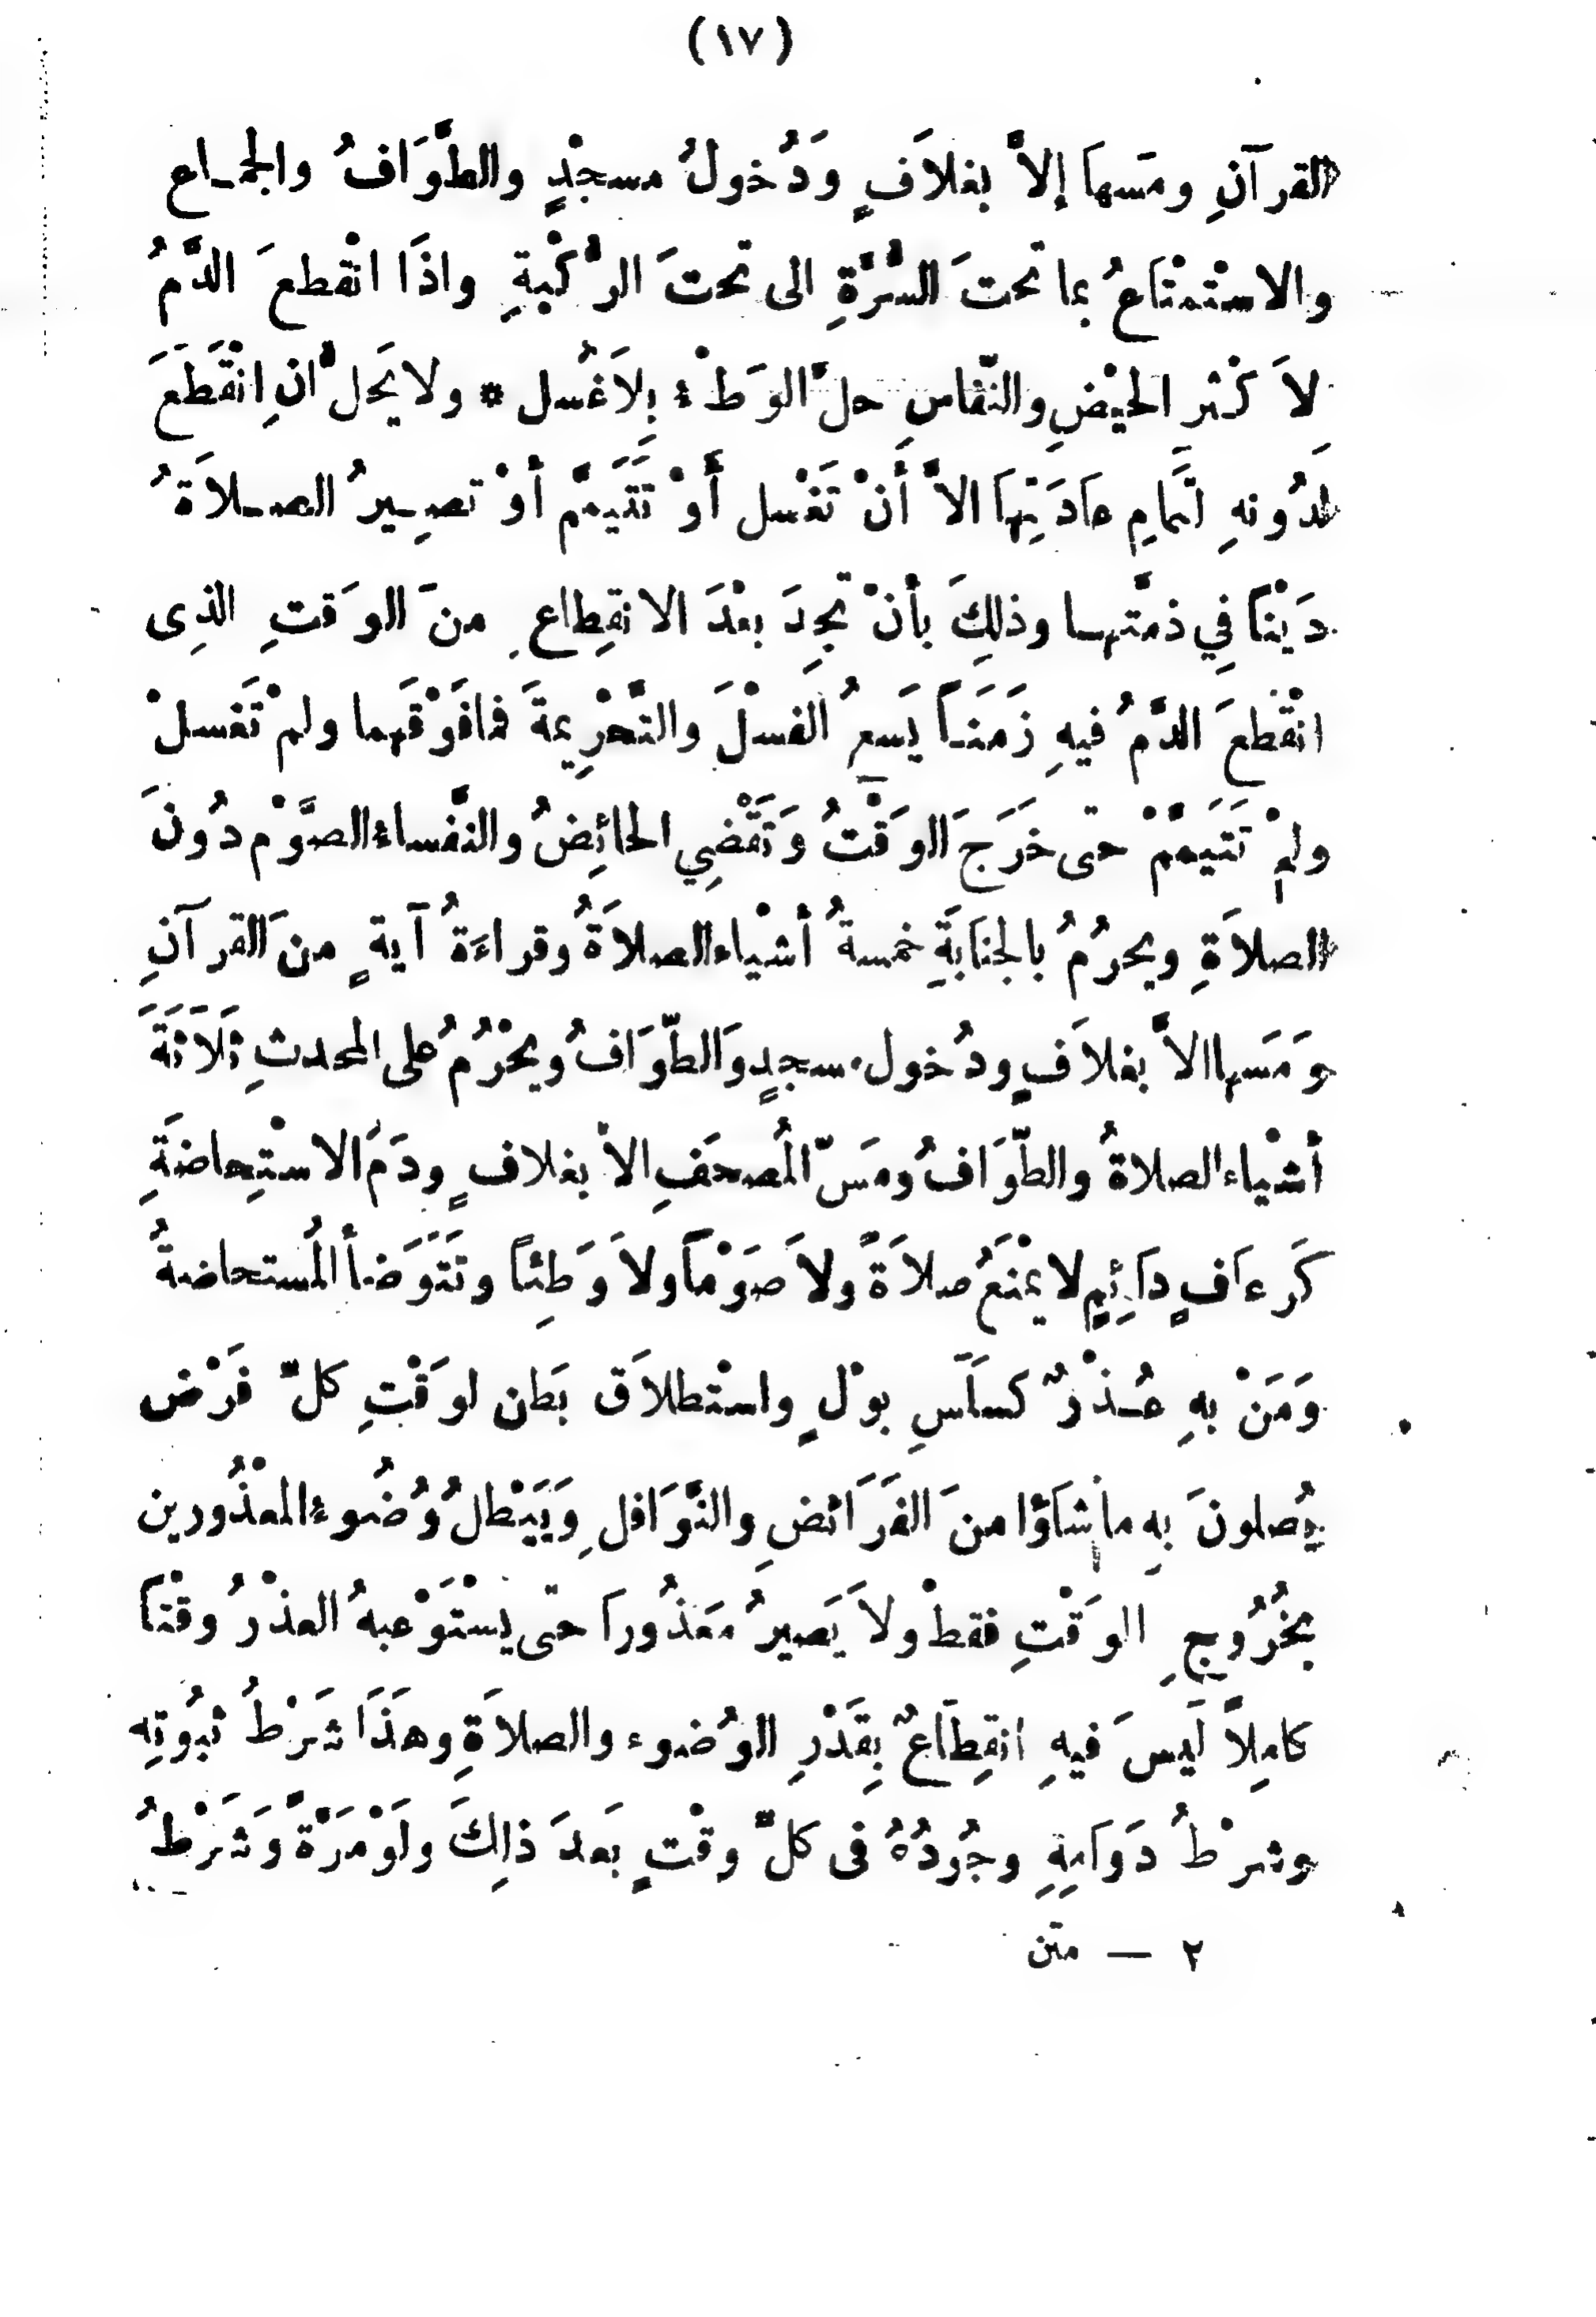 (١٧)
القرآنِ ومَسها إلاَّ بغلاَفٍ وَدُخولُ مسجْدٍ والطَّوَافُ والجمـاع
والاستْمتْاَعُ بما تحتَ السُّرَّةِ الى تحتَ الرُّكْبةِ واذَا انْقطعَ الدَّمُ
لِاَ كْثر الحيْضِ والنّفاسِ حلَّ الوَطْءُ بِلاَغُسل * ولا يَحلُّ انِ انْقَطَعَ
لدُونهِ لتَمامِ عادَتِهَا الاَّ أَنْ تَغْسل أَوْ تَتَيمَّم أوْ تصِـيرُ الصـلاَةُ
دَيْنًا فِي ذمَّتهـا وذلِكَ بأنْ تجِدَ بعْدَ الانقِطاعِ منَ الوَقتِ الذِى
انْقطعَ الدَّمُ فيهِ زَمَنـاً يَسعِ ُ الغسْلَ والتَّحْرِيمةَ فمافَوْقَهما ولمْ تَغسلْ
ولمْ تَتَيمَّمْ حتى خَرَجَ الوَقْتُ وَتَقْضِي الحائِضُ والنَّفساءُ الصَّوْم دُونَ
الصلاَةِ ويحرُمُ بالجنابَةِ خمسةُ أشْياء الصلاَةُ وقراءَةُ آيةٍ منَ القرآنِ
وَمَسها الاَّ بغلاَفٍ ودُخول مسجدٍ وَالطّوَافُ ويحْرُمُ على المحدثِ ثلاَثةَ
أشْياء الصلاةُ والطّوَافُ ومَسّ المُصحَفِ الاَّ بغلافٍ ودَمُ الاستْحاضةِ
كَرعاَفٍ دَائِمٍ لا يمْنَعُ صلاَةً ولاَ صَوْماً ولاَ وَطِئاً وتَتَوَضأ المُستحاضةُ
وَمَنْ بهِ عُـذْرٌ كسلَسِ بوْلٍ واستْطلاَق بَطن لوَقْتِ كلّ فَرْض
يُصلونَ بِهِ ماشاَؤا منَ الفَرَائضِ والنَّوَافلِ وَيَبْطلُ وُضُوءُ المعْذُورين
بخُرُوجِ الوَقْتِ فقطْ ولاَ يَصيرُ مَعذُوراَ حتى يسْتَوْعبهُ العذْرُ وقْتاً
كامِلاً لَيسَ فيهِ انقِطاَعٌ بِقَدْرِ الوُضوء والصلاَةِ وهَذَا شَرْطُ ثبُوتِه
وشرْطُ دَوَامِهِ وجُودُهُ فى كلّ وقْتٍ بَعدَ ذلِكَ ولَوْ مَرَّةً وَشَرْطُ
٢ — متن